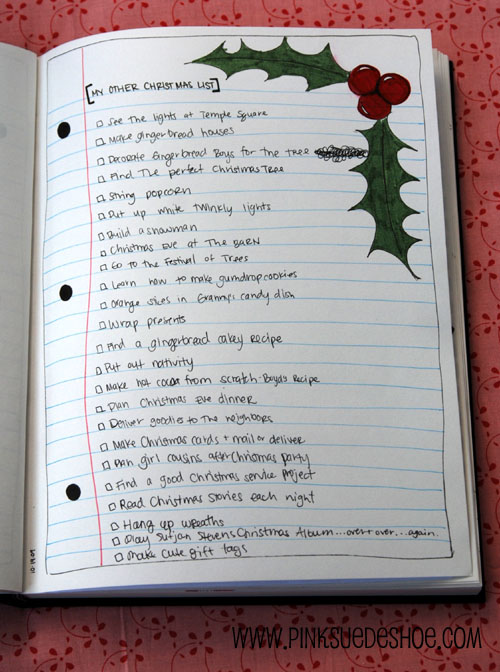 [MY OTHER CHRISTMAS LIST]
See The lights at Temple Square
Make gingerbread houses
Decorate Gingerbread Boys for the tree
Find The perfect Christmas Tree
String popcorn
Put up white twinkly lights
Build a snowman
Christmas Eve at The BARN
Go to the Festival of Trees
Learn how to make gumdrop cookies
Orange slices in Grammy's candy dish
Wrap presents
Find a gingerbread cakey recipe
Put out nativity
Make hot cocoa from scratch-Boyd's Recipe
Plan Christmas Eve dinner
Deliver goodies to The neighbors
Make Christmas cards + mail or deliver
Plan girl cousins after Christmas party
Find a good Christmas service project
Read Christmas stories each night
Hang up wreaths
Play Sufjan Stevens Christmas Album...over + over...again.
Make cute gift tags
WWW.PINKSUEDESHOE.COM